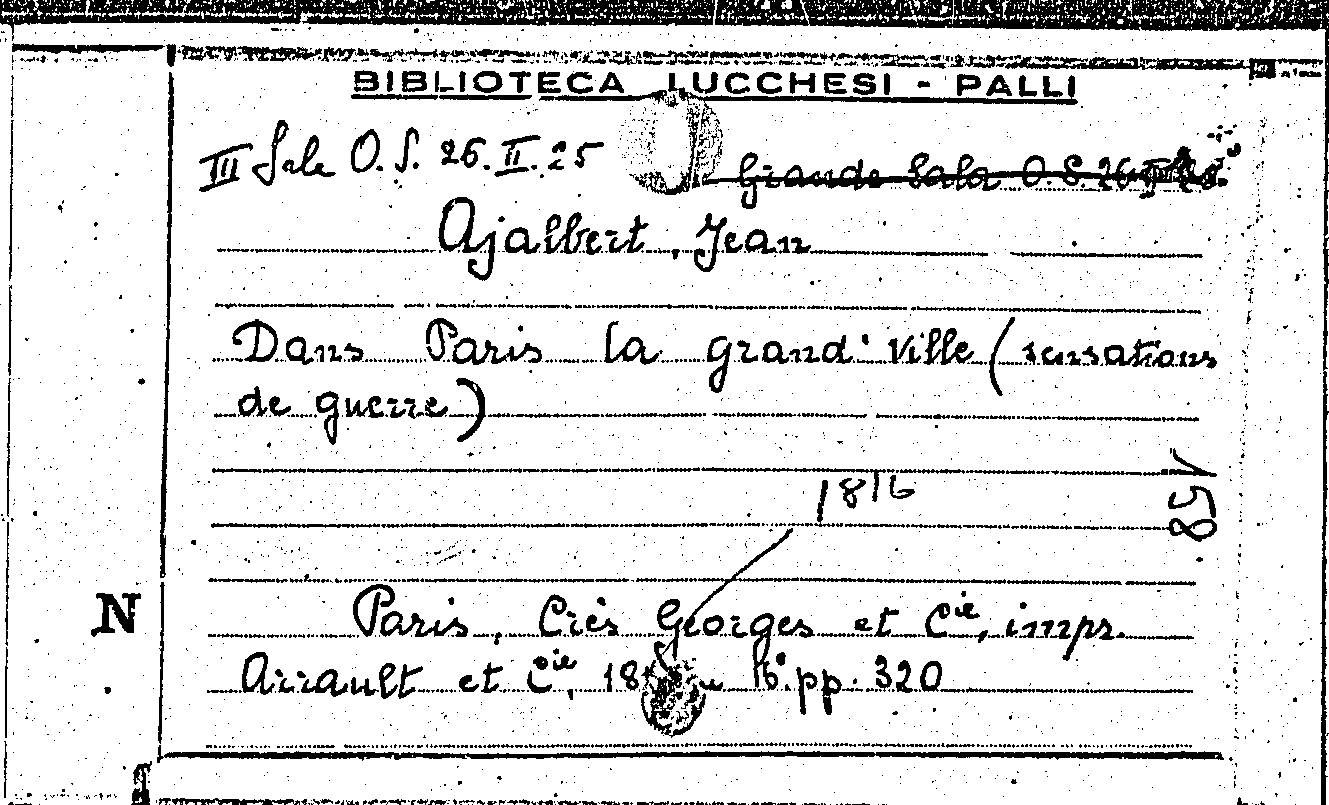 BIBLIOTECA LUCCHESI - PALLI
III Sala O. S. 26. II. 25
Grande Sala O. S. 26
Ajalbert, Jean
Dans Paris la grand' ville (sensations
de guerre)
1816
851
N
Paris, Crès Georges et Cie, impr.
Arrault et Cie, 18 16° pp. 320